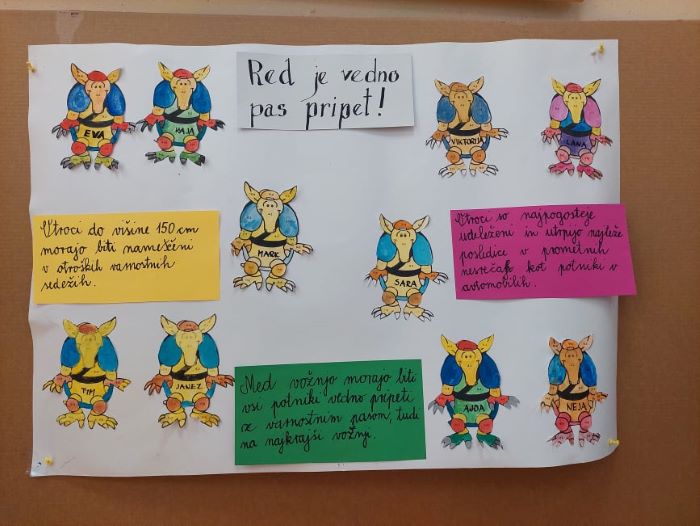 Red je vedno
pas pripet!
EVA
KAJA
VIKTORIJA
LANA
MARK
SARA
Otroci do višine 150 cm
morajo biti nameščeni
v otroških varnostnih
sedežih.
Otroci so najpogosteje
udeleženi in utrpijo najtežje
posledice v prometnih
nesrečah kot potniki v
avtomobilih.
TIM
JANEZ
AJDA
NEJA
Med vožnjo morajo biti
vsi potniki vedno pripeti
z varnostnim pasom, tudi
na najkrajši vožnji.